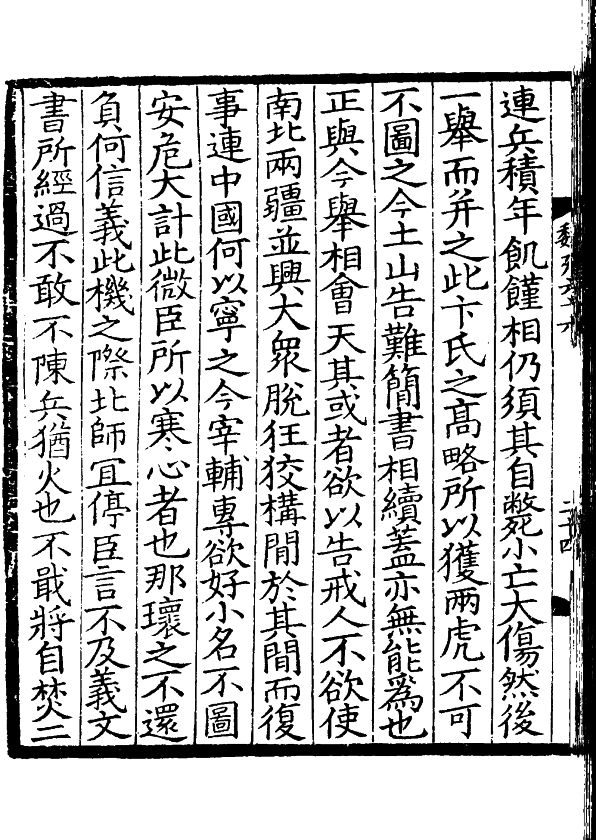 連兵積年飢饉相仍須其自斃小亡大傷然後
一舉而并之此卞氏之高略所以獲兩虎不可
不圖之今土山告難簡書相續蓋亦無能爲也
正與今舉相會天其或者欲以告戒人不欲使
南北兩疆並興大衆脫狂狡構閒於其閒而復
事連中國何以寧之今宰輔專欲好小名不圖
安危大計此微臣所以寒心者也那瓌之不還
負何信義此機之際北師宜停臣言不及義文
書所經過不敢不陳兵猶火也不戢將自焚二